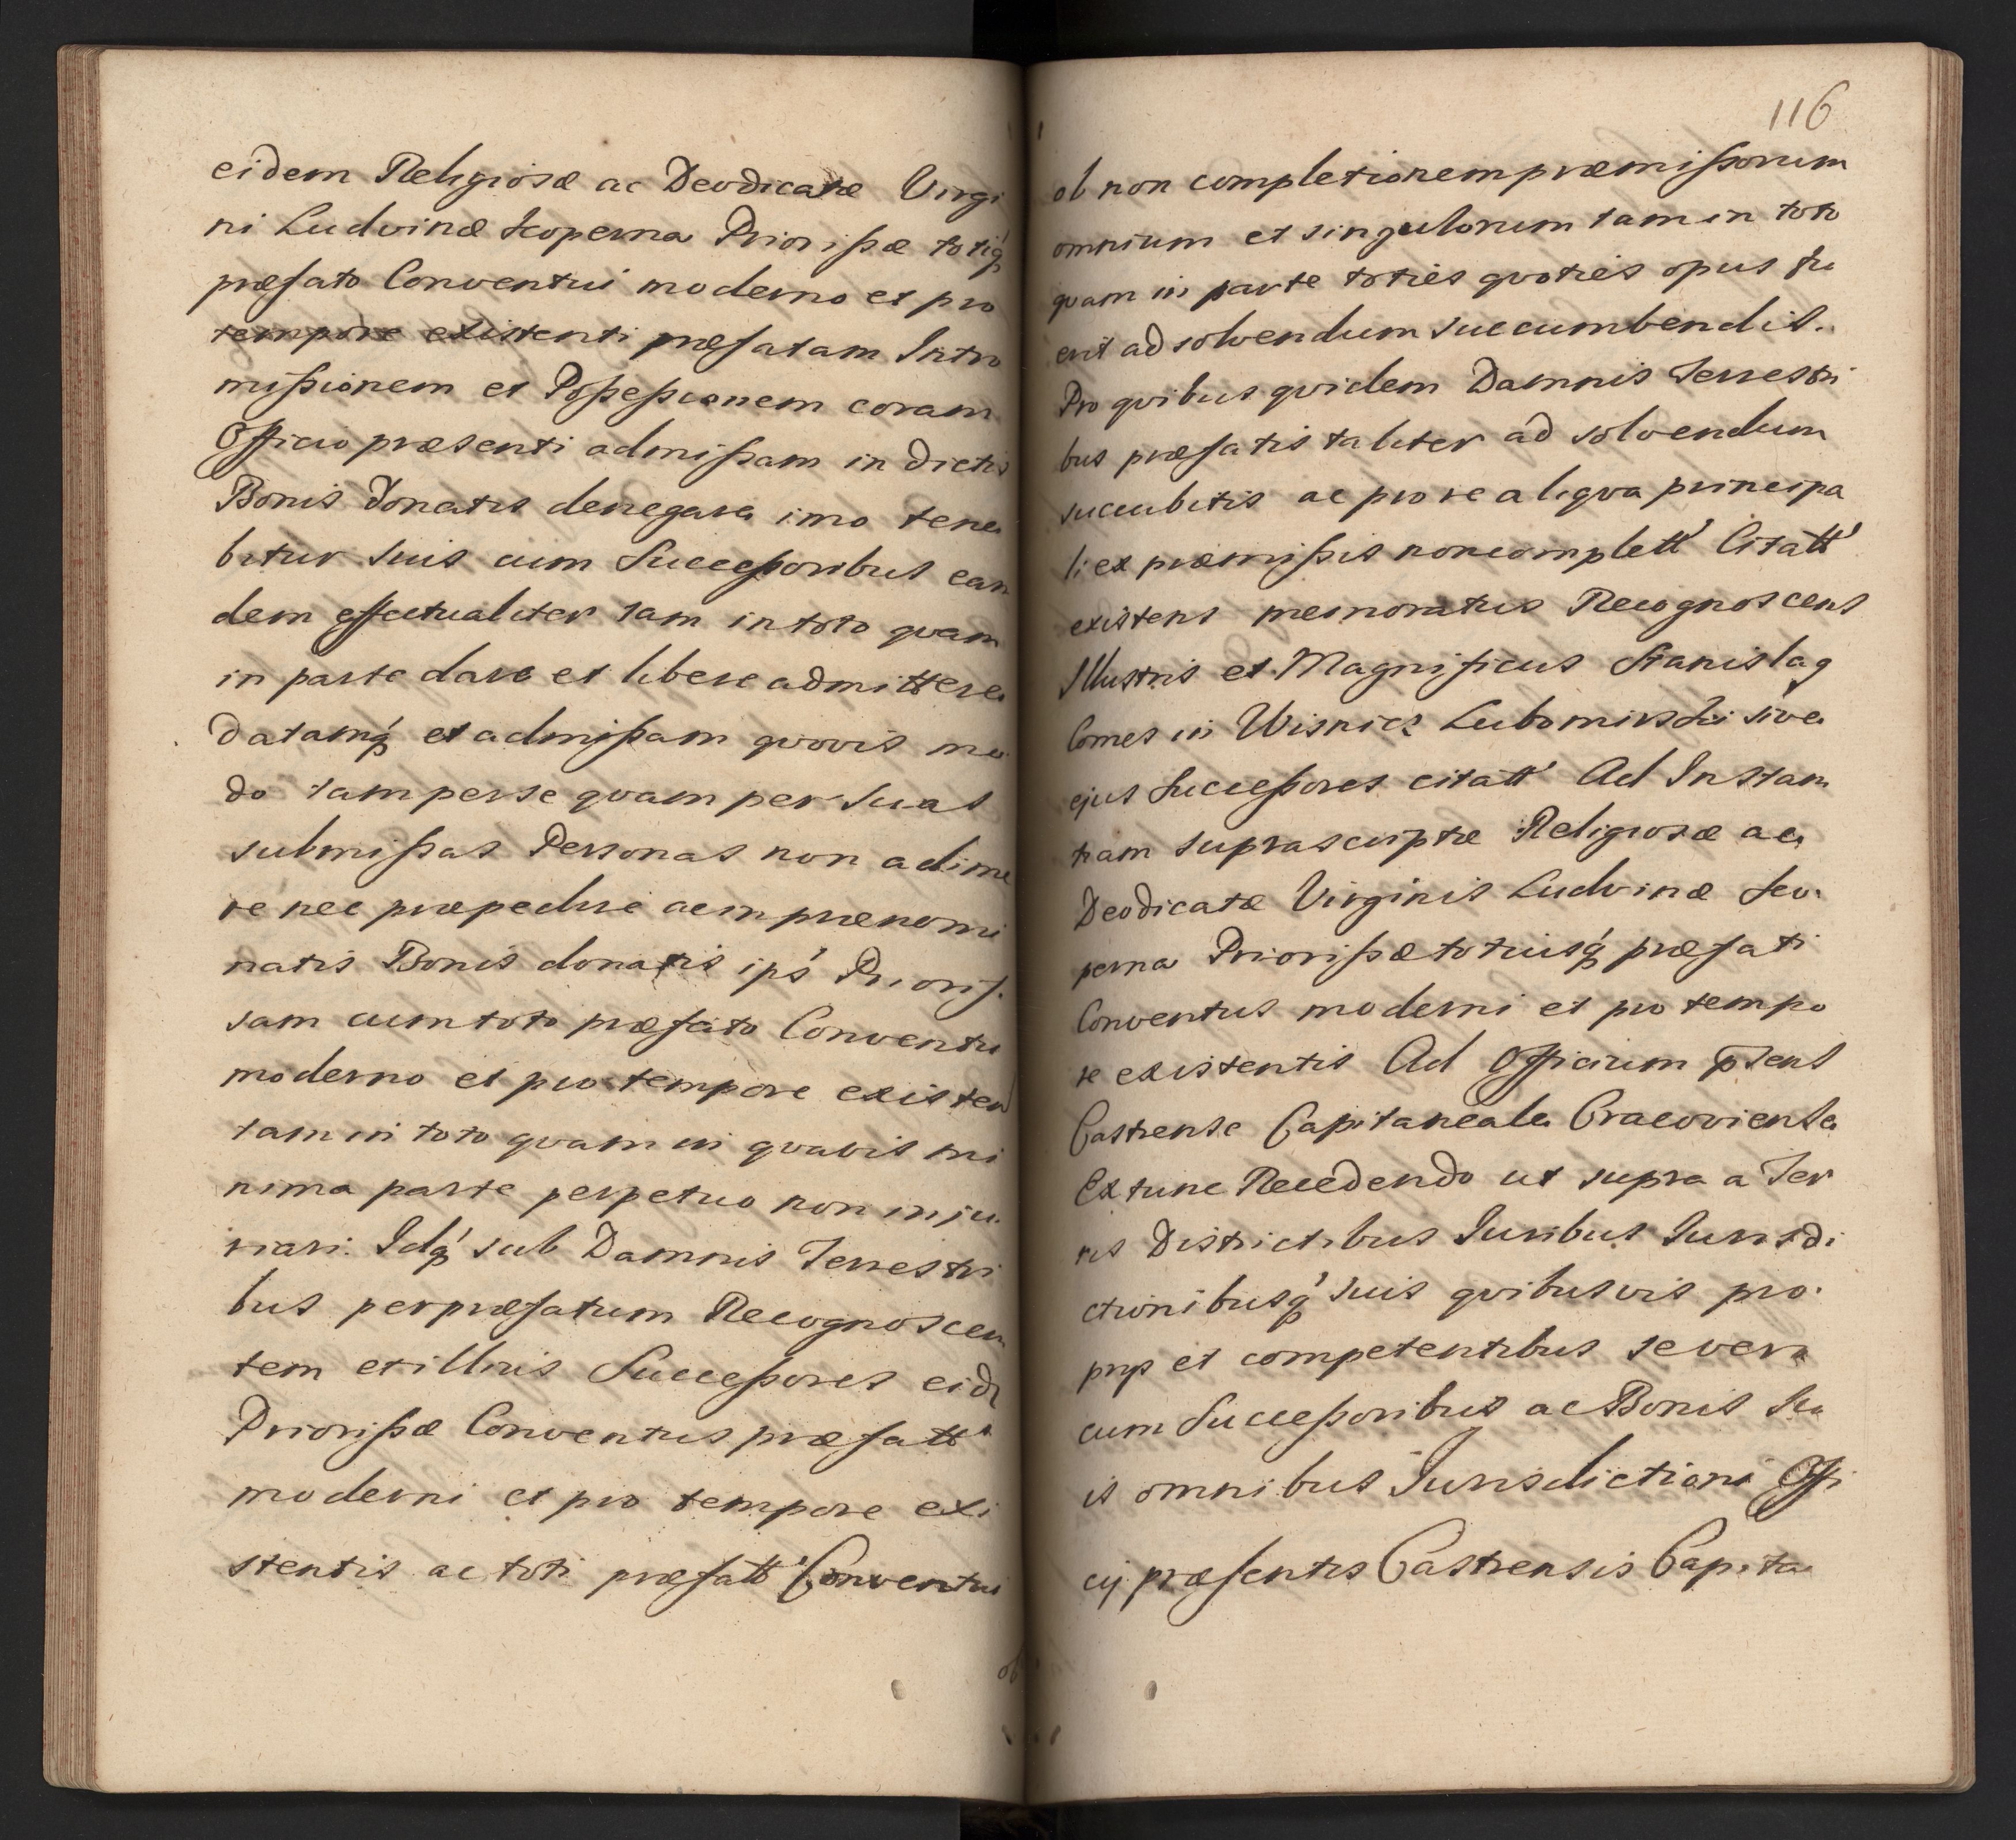 eidem Religiosæ ac Deodicatæ Virgi
ni Ludvinæ Scoperna Priorißæ totiq́
præfato Conventui moderno et pro
tempore existenti præfatam Intro
mißionem et Poßeßionem coram
Officio præsenti admißam in dictis
Bonis donatis denegare imo tene
bitur suis cum Succeßoribus ean
dem effectualiter tam in toto quam
in parte dare et libere admittere
datamq́ et admißam quovis mo
do tam per se quam per suas
submißas Personas non adime
re nec præpedire ac in prænomi
natis Bonis donatis ips' Prioriſ
sam cum toto præfato Conventu
moderno et pro tempore existen
tam in toto quam in quavis mi
nima parte perpetuo non inju
riari. Idq́ sub Damnis Terrestri
bus per præfatum Recognoscen
tem et illius Succeßores eid
Priorißæ Conventus præfatt'
moderni et pro tempore exi
stentis ac toti præfatt' Conventui
ob
116
ob non completionem præmißorum
omnium et singulorum tam in toto
quam in parte toties quoties opus fu
erit ad solvendum succumbendis.
Pro quibus quidem Damnis Terrestri
bus præfatis taliter ad solvendum
succubitis ac pro re aliqua principa
li ex præmißis non complett' Citatt'
existens memoratus Recognoscens
Illustris et Magnificus Stanislaq
Comes in Wisnicz Lubomirski sive
ejus Succeßores citatt' Ad Instan
tiam suprascriptæ Religiosæ ac
Deodicatæ Virginis Ludvinæ Sco
perna Priorißæ totiusq́ præfati
Conventus moderni et pro tempo
re existentis Ad Officium p̄sens
Castrense Capitaneale Cracoviense
Ex tunc Recedendo ut supra a Ter
ris Districtibus Juribus Jurisdi
ctionibusq́ suis quibusvis pro
prijs et competentibus se vero
cum Succeßoribus ac Bonis su
is omnibus Jurisdictioni Offi
cij præsentis Castrensis Capita